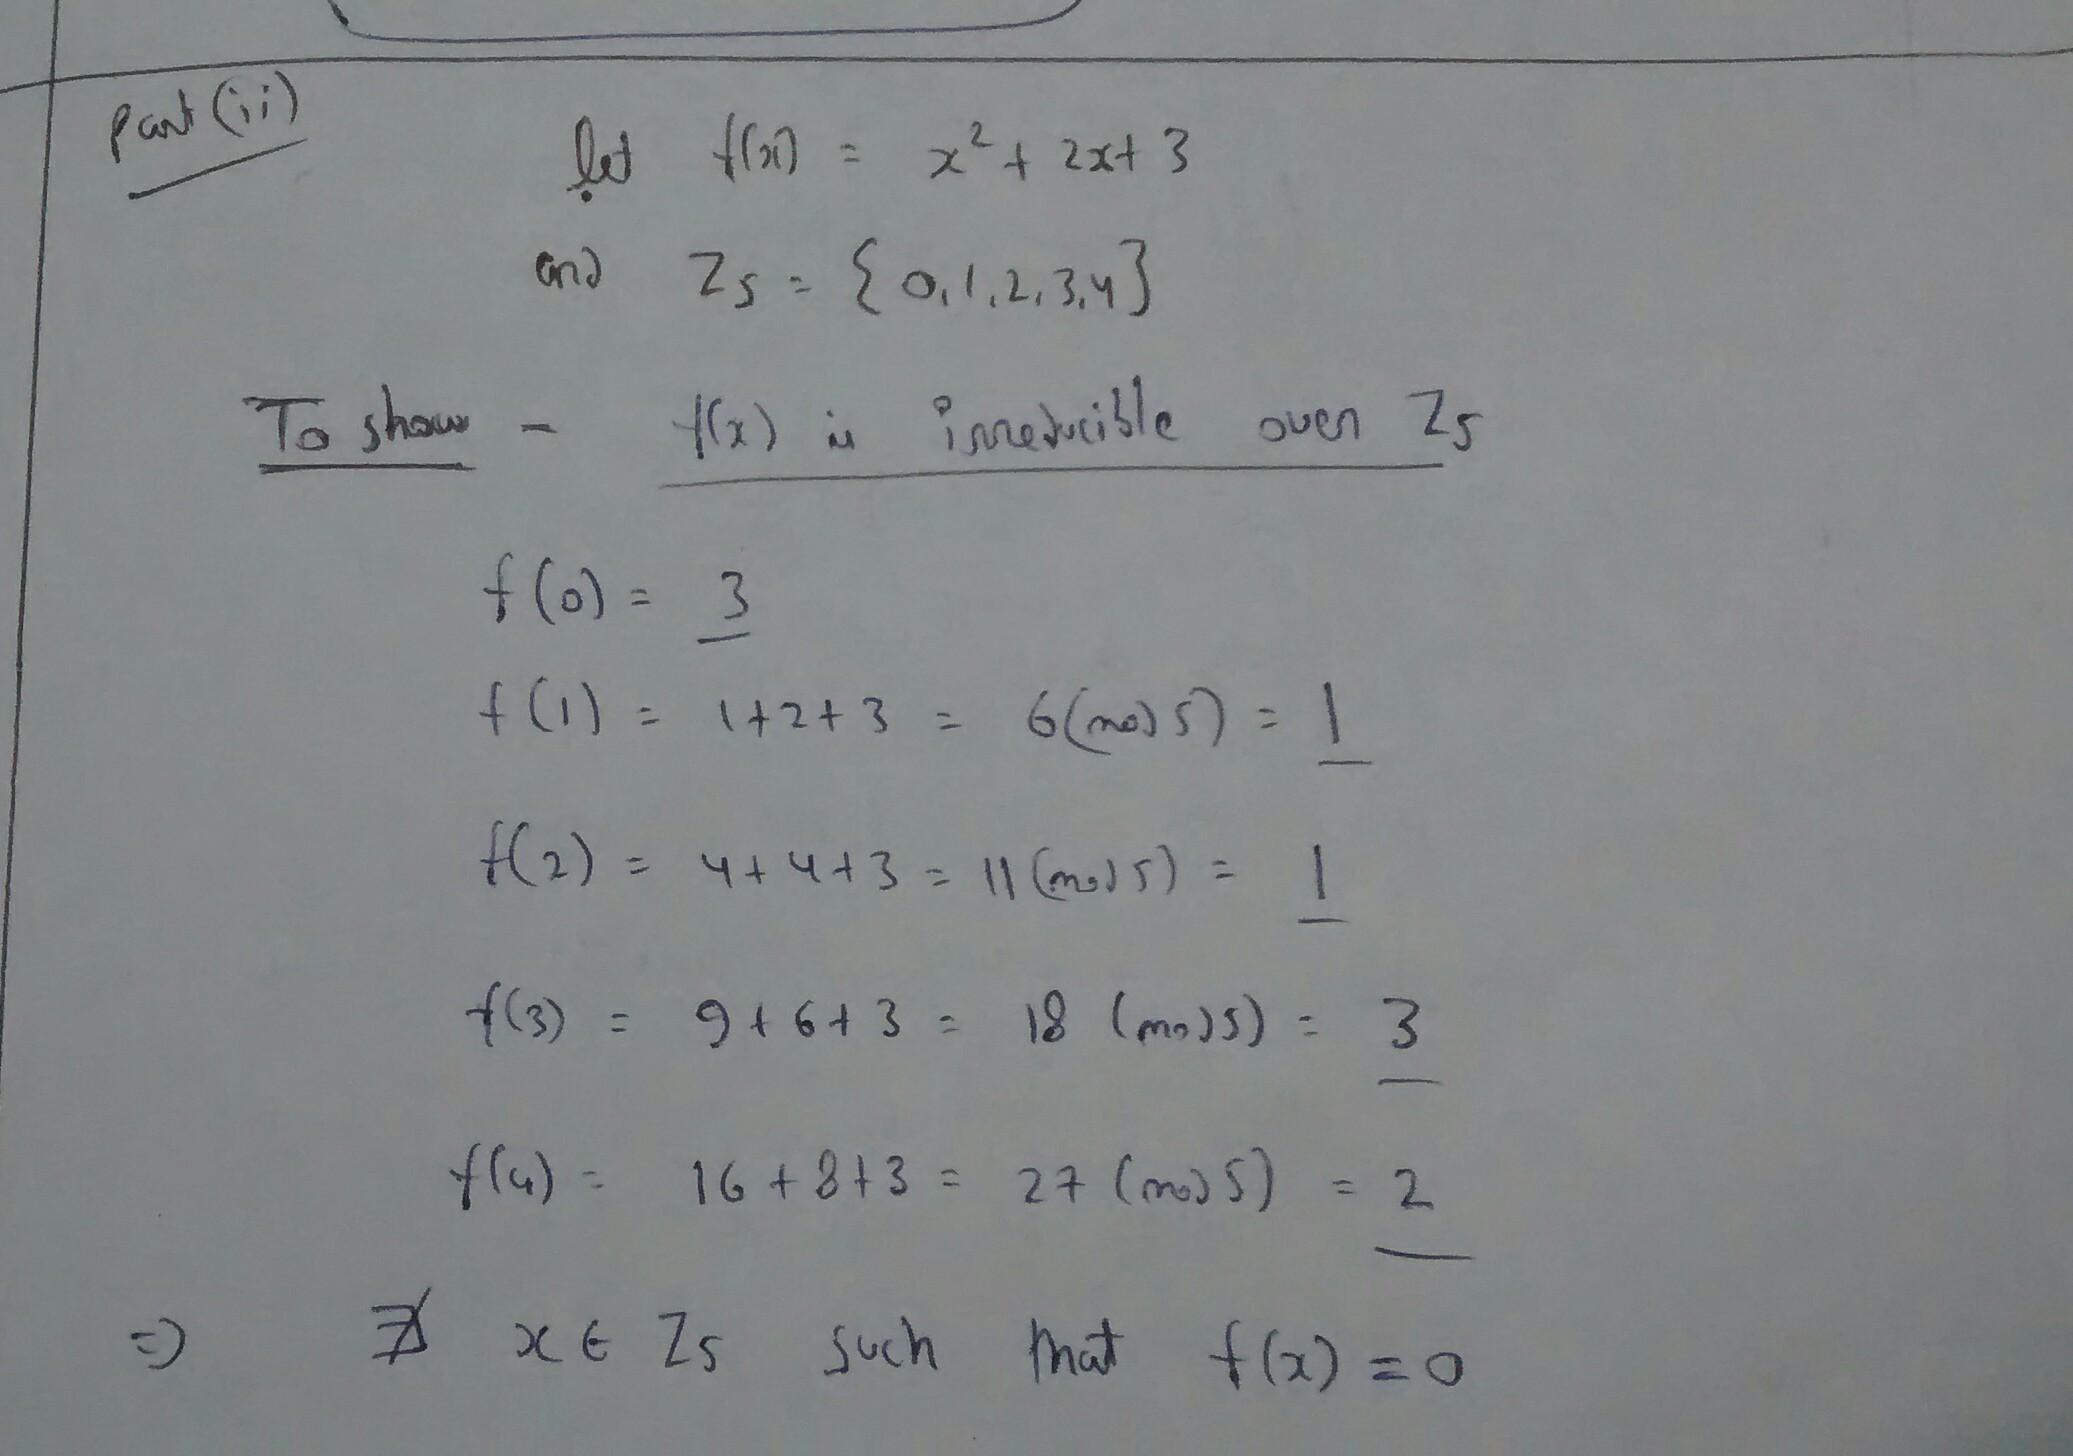 Part (ii)
let f(x) = x² + 2x + 3
and Z5 = {0,1,2,3,4}
To show - f(x) is irreducible over Z5
f(0) = 3
f(1) = 1+2+3 = 6(mod 5) = 1
f(2) = 4+4+3 = 11(mod 5) = 1
f(3) = 9+6+3 = 18 (mod 5) = 3
f(4) = 16+8+3 = 27 (mod 5) = 2
=) ∄ x ∈ Z5 such that f(x) = 0